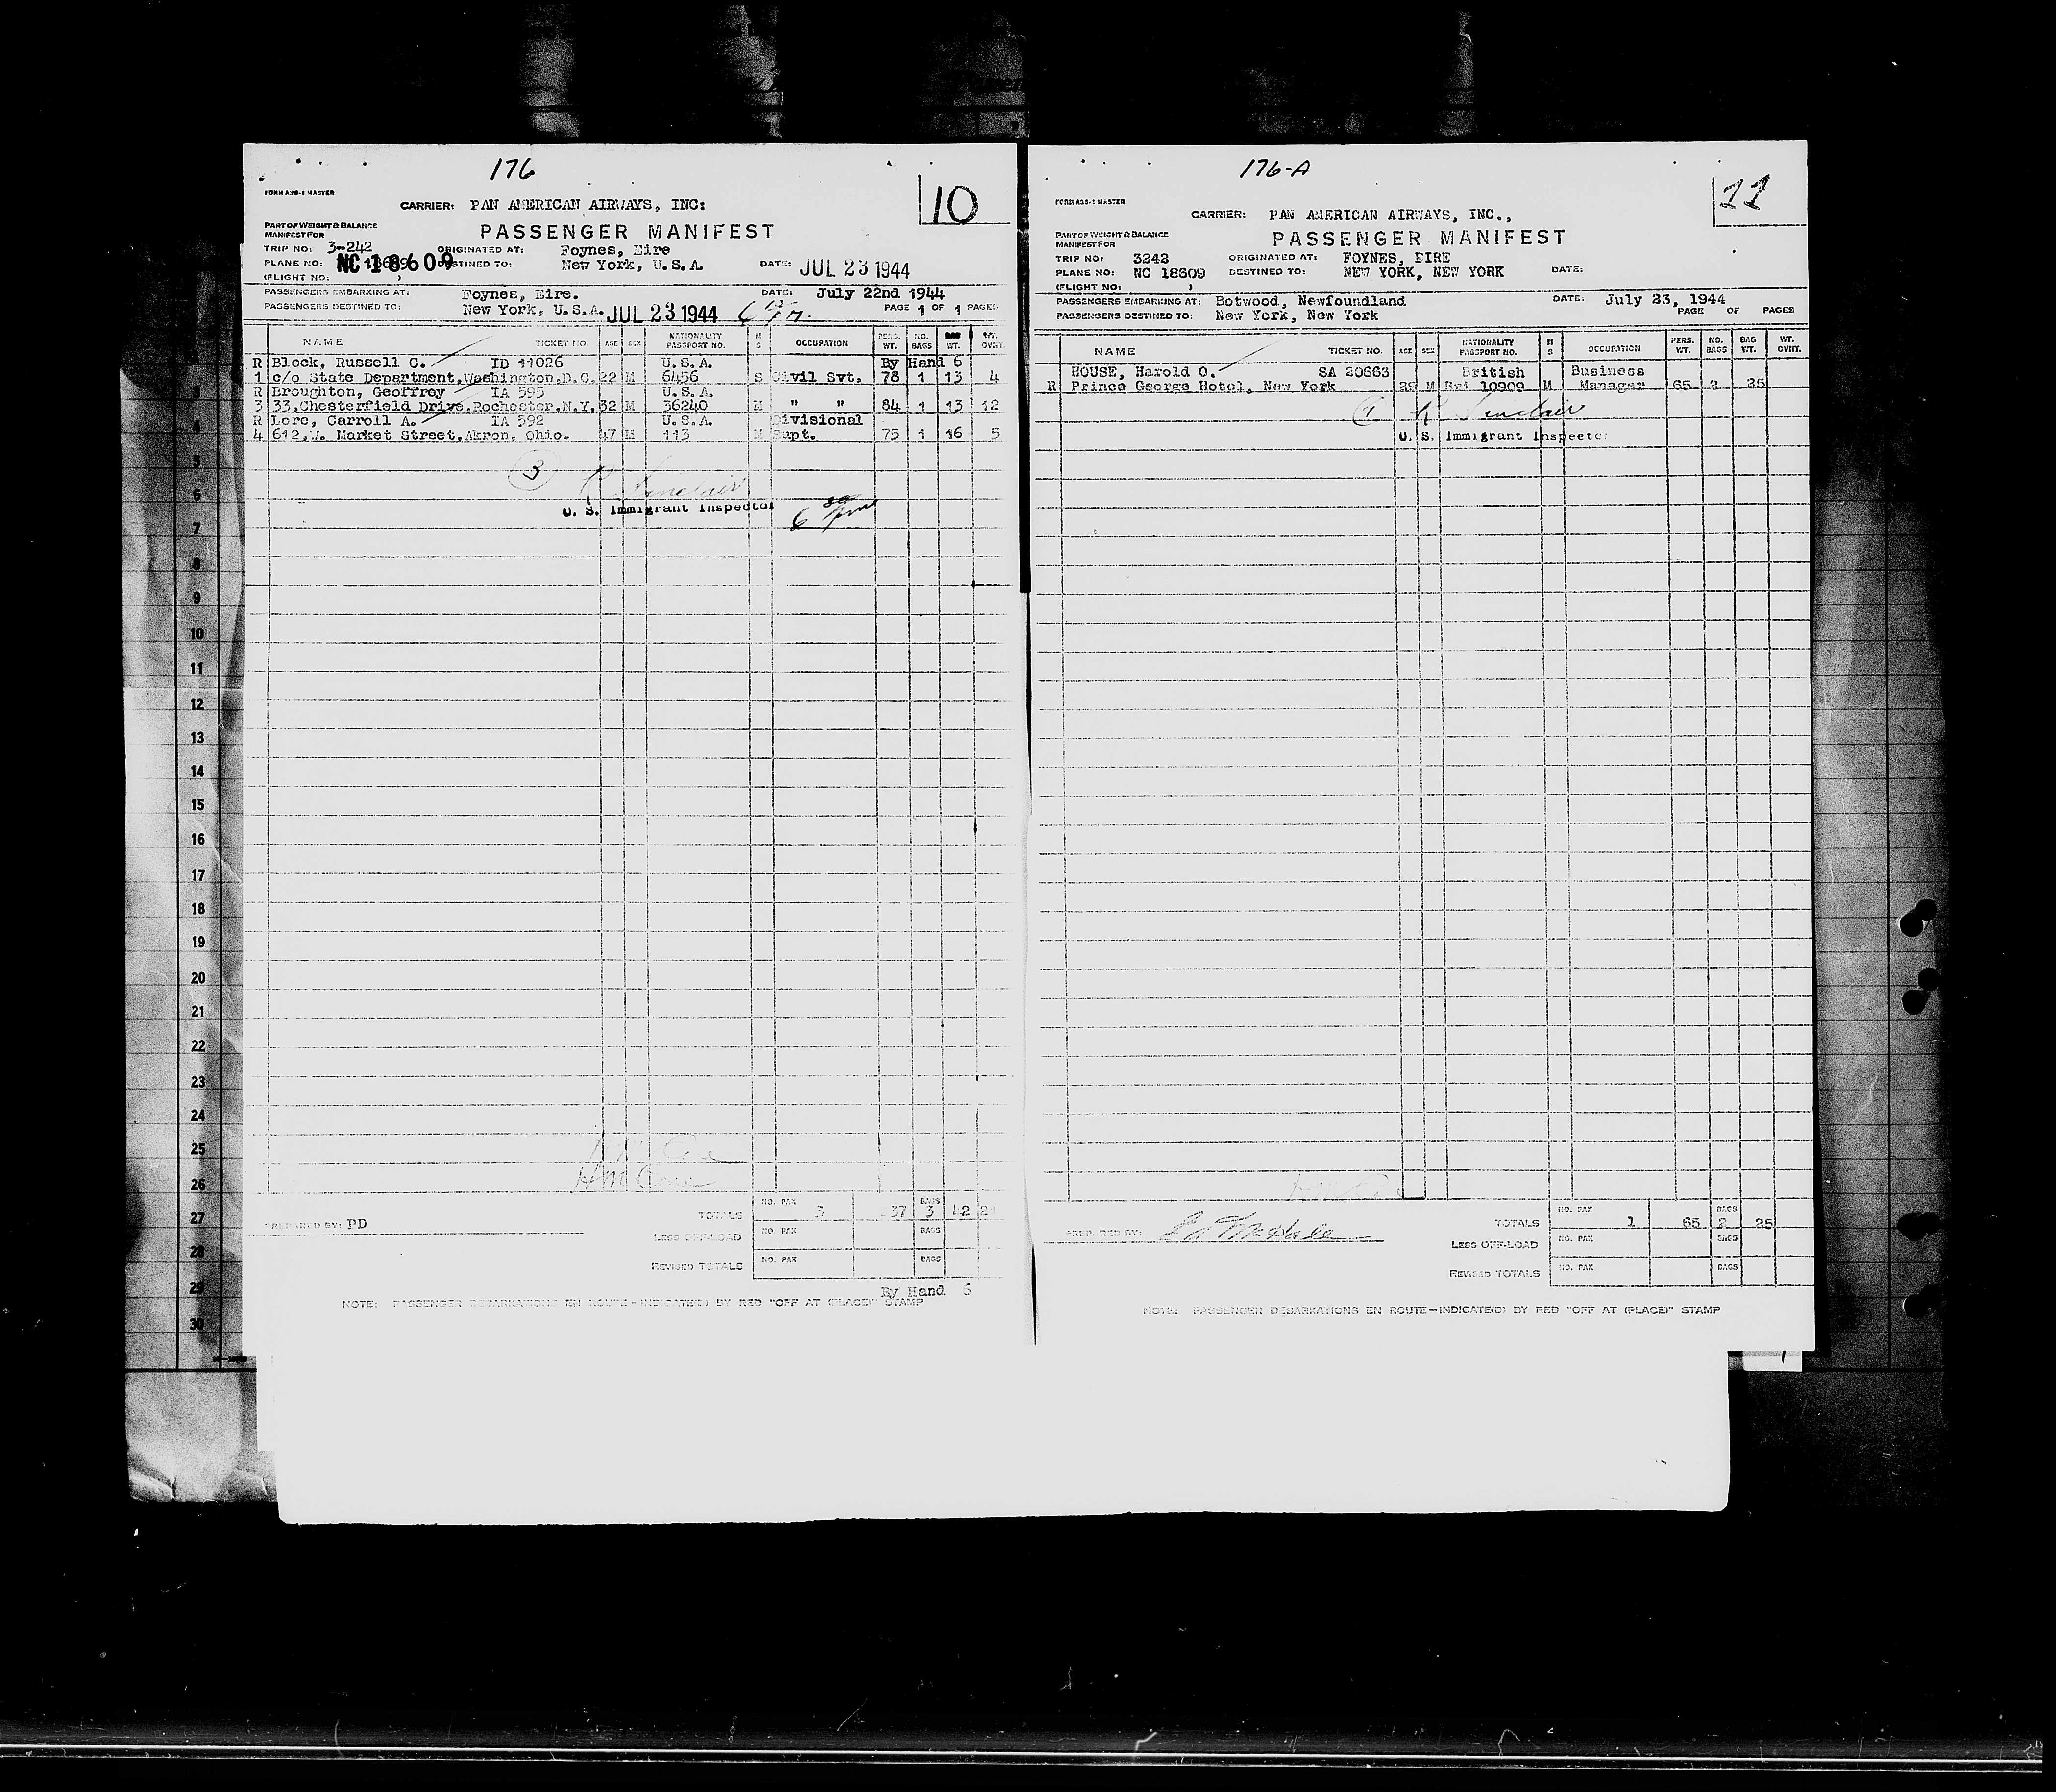 176
10
FORM A35-1 MASTER
CARRIER: PAN AMERICAN AIRWAYS, INC:
PART OF WEIGHT & BALANCE
MANIFEST FOR
PASSENGER MANIFEST
TRIP NO: 3-242 ORIGINATED AT: Foynes, Eire
PLANE NO: NC 18609 DESTINED TO: New York, U.S.A. DATE: JUL 23 1944
(FLIGHT NO: )
PASSENGERS EMBARKING AT: Foynes, Eire. DATE: July 22nd 1944
PASSENGERS DESTINED TO: New York, U.S.A. JUL 23 1944 PAGE 1 OF 1 PAGES
NAME TICKET NO. AGE SEX NATIONALITY PASSPORT NO. M S OCCUPATION PERS. WT. NO. BAGS BAG WT. WT. OVHT.
R Block, Russell C. ID 11026 U.S.A. By Hand 6
1 c/o State Department, Washington, D.C. 22 M 6456 S Civil Svt. 78 1 13 4
R Broughton, Geoffrey IA 595 U.S.A.
3 33, Chesterfield Drive, Rochester, N.Y. 32 M 36240 M " " 84 1 13 12
R Lore, Carroll A. IA 592 U.S.A. Divisional
4 612, W. Market Street, Akron, Ohio. 47 M 113 M Supt. 75 1 16 5
3 Sinclair
U. S. Immigrant Inspector
3
4
5
6
7
8
9
10
11
12
13
14
15
16
17
18
19
20
21
22
23
24
25
26
27
28
29
30
PREPARED BY: PD
TOTALS NO. PAX 3 37 BAGS 3 42
LESS OFF-LOAD NO. PAX BAGS
REVISED TOTALS NO. PAX BAGS
By Hand 6
NOTE: PASSENGER DEBARKATIONS EN ROUTE-INDICATE(D) BY RED "OFF AT (PLACE)" STAMP
176-A
11
FORM A35-1 MASTER
CARRIER: PAN AMERICAN AIRWAYS, INC.,
PART OF WEIGHT & BALANCE
MANIFEST FOR
PASSENGER MANIFEST
TRIP NO: 3242 ORIGINATED AT: FOYNES, EIRE
PLANE NO: NC 18609 DESTINED TO: NEW YORK, NEW YORK DATE:
(FLIGHT NO: )
PASSENGERS EMBARKING AT: Botwood, Newfoundland DATE: July 23, 1944
PASSENGERS DESTINED TO: New York, New York PAGE OF PAGES
NAME TICKET NO. AGE SEX NATIONALITY PASSPORT NO. M S OCCUPATION PERS. WT. NO. BAGS BAG WT. WT. OVHT.
HOUSE, Harold O. SA 20663 British Business
R Prince George Hotel, New York M Bri 10909 M Manager 65 2 25
1 Sinclair
U. S. Immigrant Inspector
PREPARED BY:
TOTALS NO. PAX 1 65 BAGS 2 25
LESS OFF-LOAD NO. PAX BAGS
REVISED TOTALS NO. PAX BAGS
NOTE: PASSENGER DEBARKATIONS EN ROUTE-INDICATE(D) BY RED "OFF AT (PLACE)" STAMP